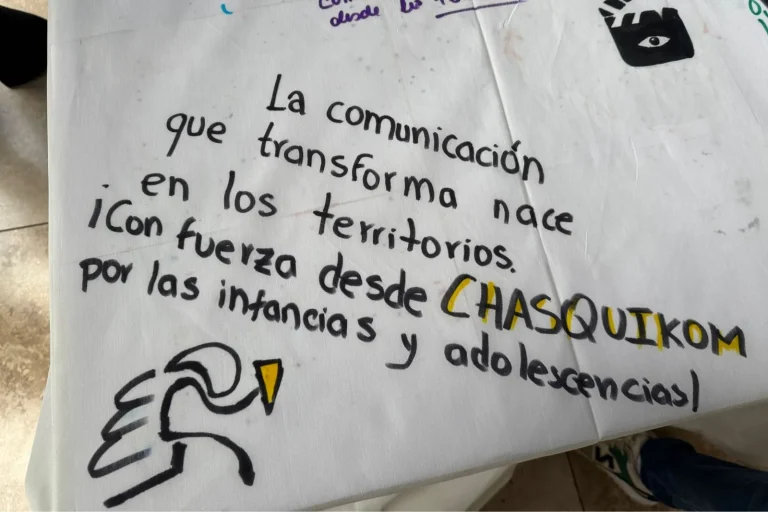 desde
La comunicación
que transforma nace
en los territorios.
¡Con fuerza desde CHASQUIKOM
por las infancias y adolescencias!